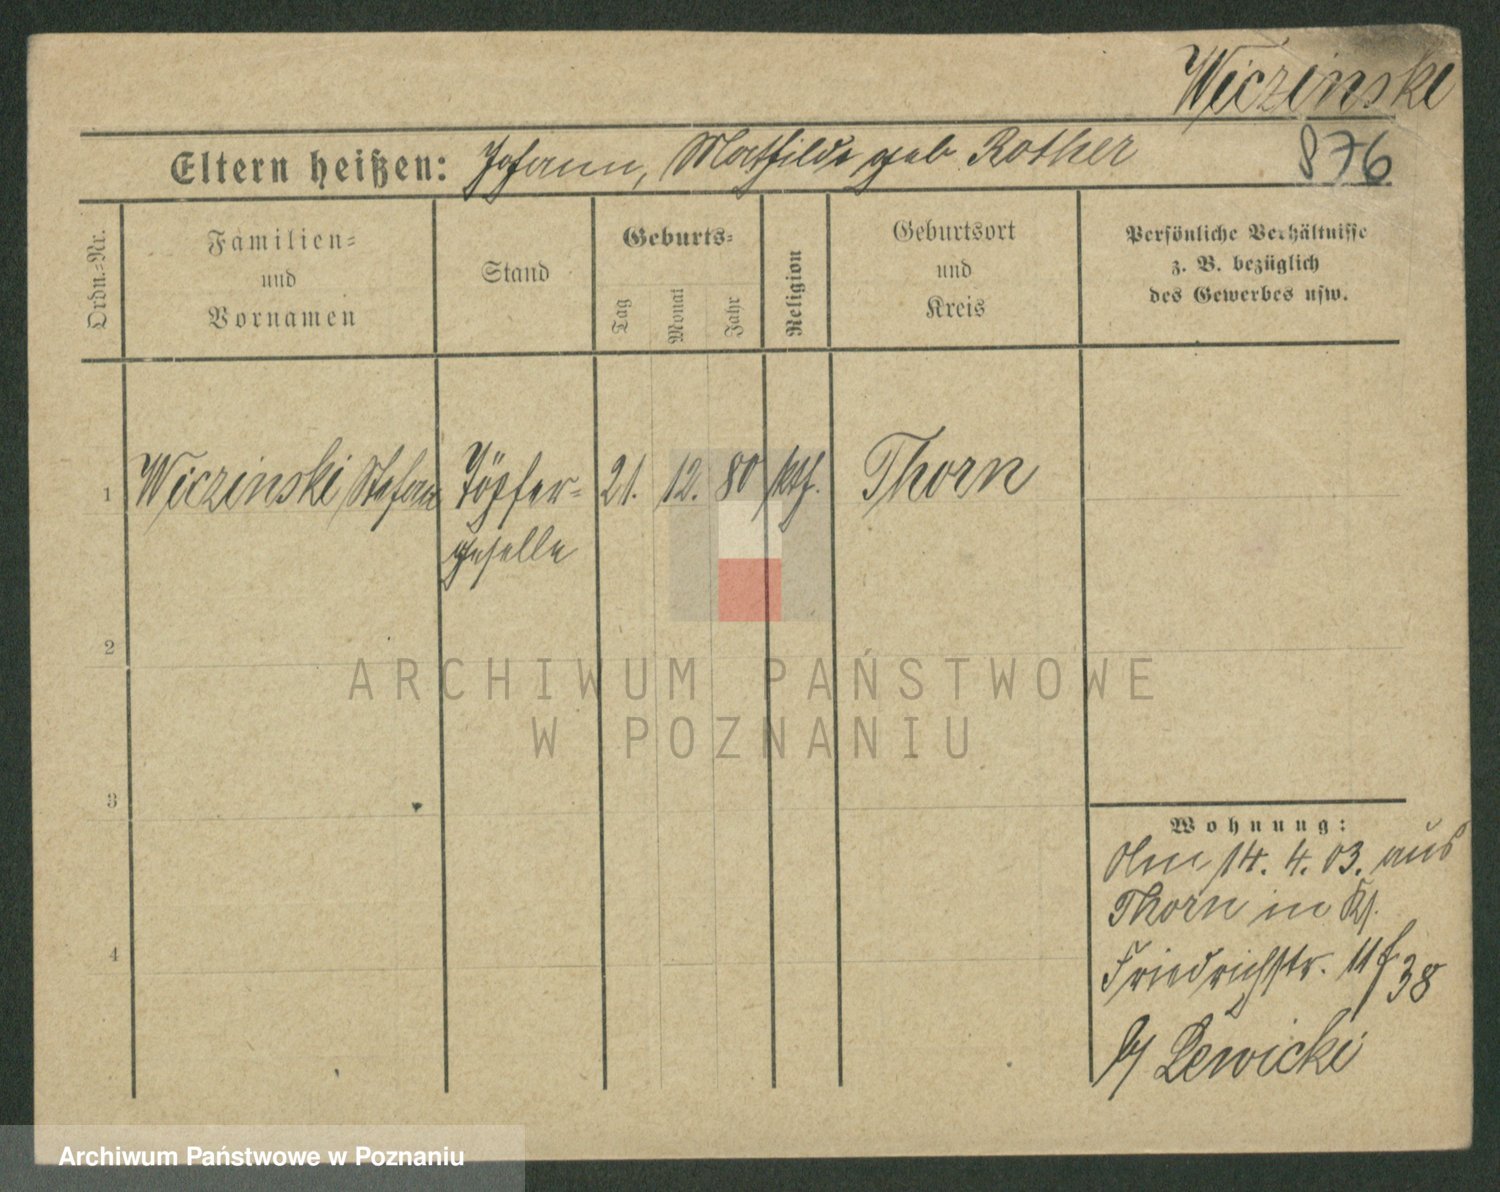 Wiczinski
Eltern heißen: Johann, Mathilde geb Rother
876
Ordn.=Nr.
Familien=
und
Vornamen
Stand
Geburts=
Tag
Monat
Jahr
Religion
Geburtsort
und
Kreis
Persönliche Verhältnisse
z. B. bezüglich
des Gewerbes usw.
1 Wiczinski Stefan Töpfer= 21. 12. 80 kth. Thorn
geselle
2
3
4
Wohnung:
14. 4. 03. aus
Thorn in
Friedrichstr. 11
38
b/ Lewicki
ARCHIWUM PAŃSTWOWE
W POZNANIU
Archiwum Państwowe w Poznaniu